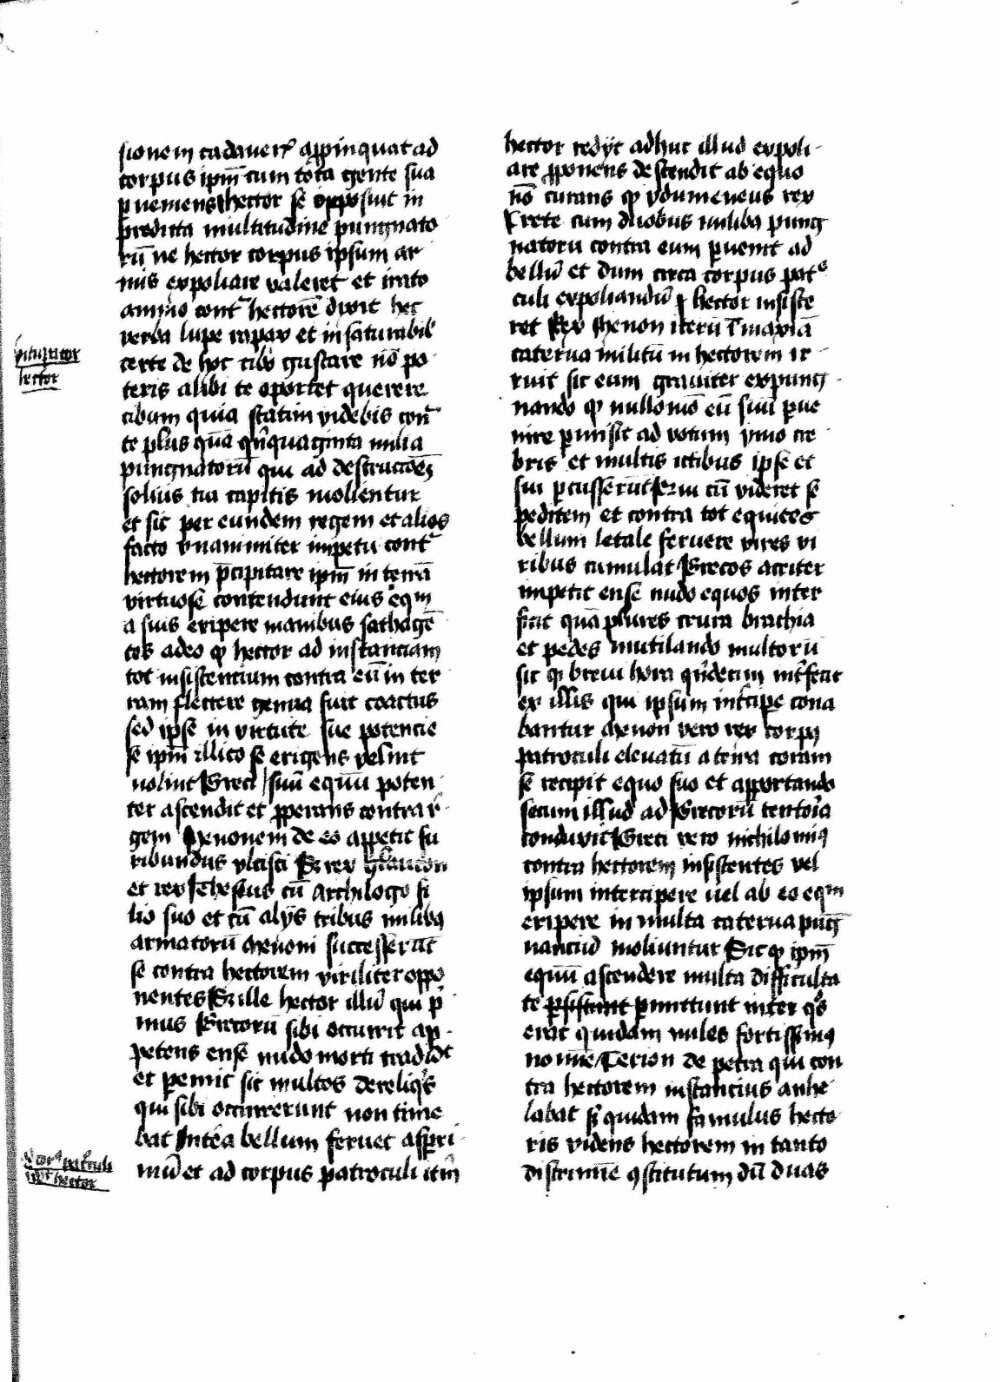 sionem cadaueris appinquat ad
corpus ipm̄ cum tota gente sua
pueniens hector se opposuit in
predicta multitudine pungnato
rū ne hector corpus ipsum ar
mis expoliare valeret et irato
animo cont hectorē dixit hec
verba lupe rapax et insaturabil
certe de hoc cibo gustare nō po
teris alibi te oportet querere
cibum quia statim videbis cont
te plus quā qnquaginta milia
pungnatorū qui ad destruccōez
solius tui capitis molientur
et sic per eundem regem et alios
facto vnanimiter impetu cont
hectorem pcipitare ipm̄ in terrā
virtuose contendunt eius eqm
a suis eripere manibus sathagē
tes adeo qp hector ad instanciam
tot insistencium contra eū in ter
ram flectere genua fuit coactus
sed ipse in virtute sue potencie
se ipm̄ illico se erigens velint
nolint Greci suū equū poten
ter ascendit et pperans contra r
gem Menonem de eo appetit fu
ribundus vlcisci Et rex Glaucon
et rex Thesius cū Archilogo fi
lio suo et cū alijs tribus milibꝫ
armatorū Menoni successerūt
se contra hectorem viriliter oppo
nentes Et ille hector illū qui p
mus Grecorū sibi occurrit ap
petens ense nudo morti tradidit
et pemit sic multos dereliqs
qui sibi occurrerunt non time
bat Intea bellum feruet asperi
mū et ad corpus patroculi itm
vituperator
hector
corp patroculi
hector
hector redijt adhuc illud expoli-
are pponens descendit ab equo
nō curans qp ydumeneus rex
Crete cum duobus milibꝫ pung
natorū contra eum puenit ad
bellū et dum circa corpus pat
culi expoliandū hector insiste
ret Rex Menon iterū maxiā
caterua militū in hectorem ir-
ruit sic eum grauiter expung
nando qp nullomō eū sinū pue
nire pmisit ad votum ymo cre-
bris et multis ictibus ipse et
sui pcusserūt hectoriū cū videret se
peditem et contra tot equites
bellum letale feruere vires vi
ribus cumulat Grecos acriter
impetit ense nudo equos inter
ficit quā plures crura brachia
et pedes mutilando multorū
sic qp breui hora qndecim intfecit
ex illis qui ipsum intcipe cona
bantur Menon vero rex corpꝫ
patroculi eleuatū a terra coram
se recipit equo suo et apportando
secum illud ad Grecorū tentoria
conduxit Greci vero nichilominꝫ
contra hectorem insistentes vel
ipsum intercipere uel ab eo eqm
eripere in multa caterua pug
nanciū moliuntur Sic qp ipm̄
equū ascendere multa difficulta
te pmittunt inter qs
erat quidam miles fortissimꝫ
noīne Cerion de petra qui con
tra hectorem instancius anhe
labat s quidam famulus hecto
ris videns hectorem in tanto
discrimīe gstitutum dū duas